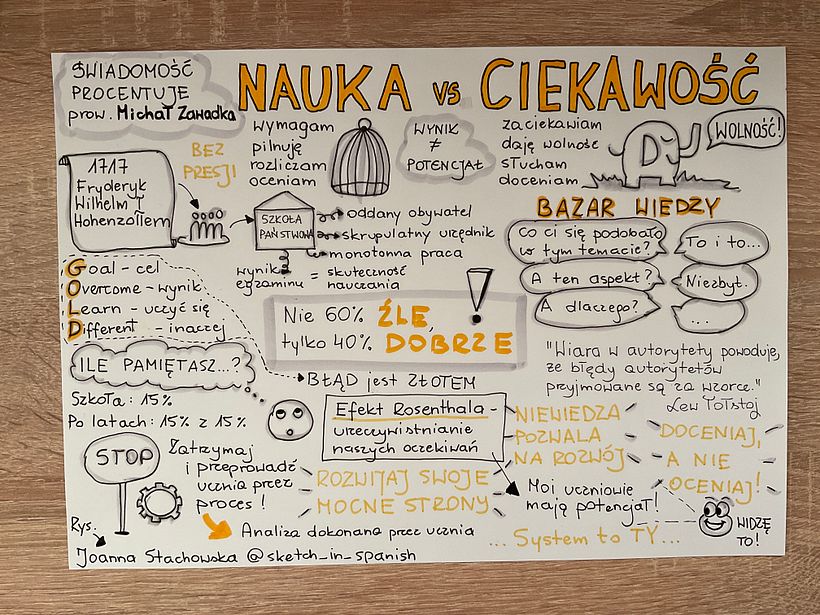 ŚWIADOMOŚĆ
PROCENTUJE
prow. Michał Zawadka
NAUKA vs CIEKAWOŚĆ
wymagam
pilnuję
rozliczam
oceniam
WYNIK
≠
POTENCJAŁ
zaciekawiam
daję wolność
słucham
doceniam
WOLNOŚĆ!
1717
Fryderyk
Wilhelm I
Hohenzollern
BEZ
PRESJI
SZKOŁA
PAŃSTWOWA
oddany obywatel
skrupulatny urzędnik
monotonna praca
wynik
egzaminu = skuteczność
nauczania
BAZAR WIEDZY
Co ci się podobało
w tym temacie?
To i to...
A ten aspekt?
Niezbyt.
A dlaczego?
...
Goal - cel
Overcome - wynik
Learn - uczyć się
Different - inaczej
Nie 60% ŹLE,
tylko 40% DOBRZE
!
ILE PAMIĘTASZ...?
Szkoła: 15%
Po latach: 15% z 15%
BŁĄD jest ZŁOTEM
"Wiara w autorytety powoduje,
że błędy autorytetów
przyjmowane są za wzorce."
Lew Tołstoj
Efekt Rosenthala -
urzeczywistnianie
naszych oczekiwań
NIEWIEDZA
POZWALA
NA ROZWÓJ
DOCENIAJ,
A NIE
OCENIAJ!
STOP
Zatrzymaj
i przeprowadź
ucznia przez
proces!
ROZWIJAJ SWOJE
MOCNE STRONY
Moi uczniowie
mają potencjał!
WIDZĘ
TO!
Analiza dokonana przez ucznia
... System to TY...
Rys.
Joanna Stachowska @sketch_in_spanish